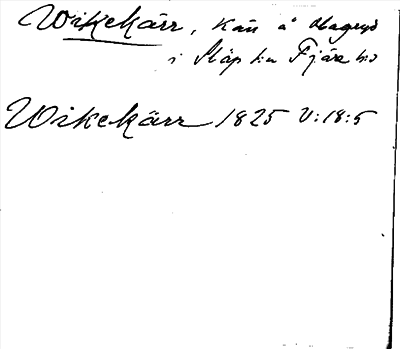 Wikekärr, kär å Hagryd
i Släp sn Fjäre hd
Wikekärr 1825 V:18:5